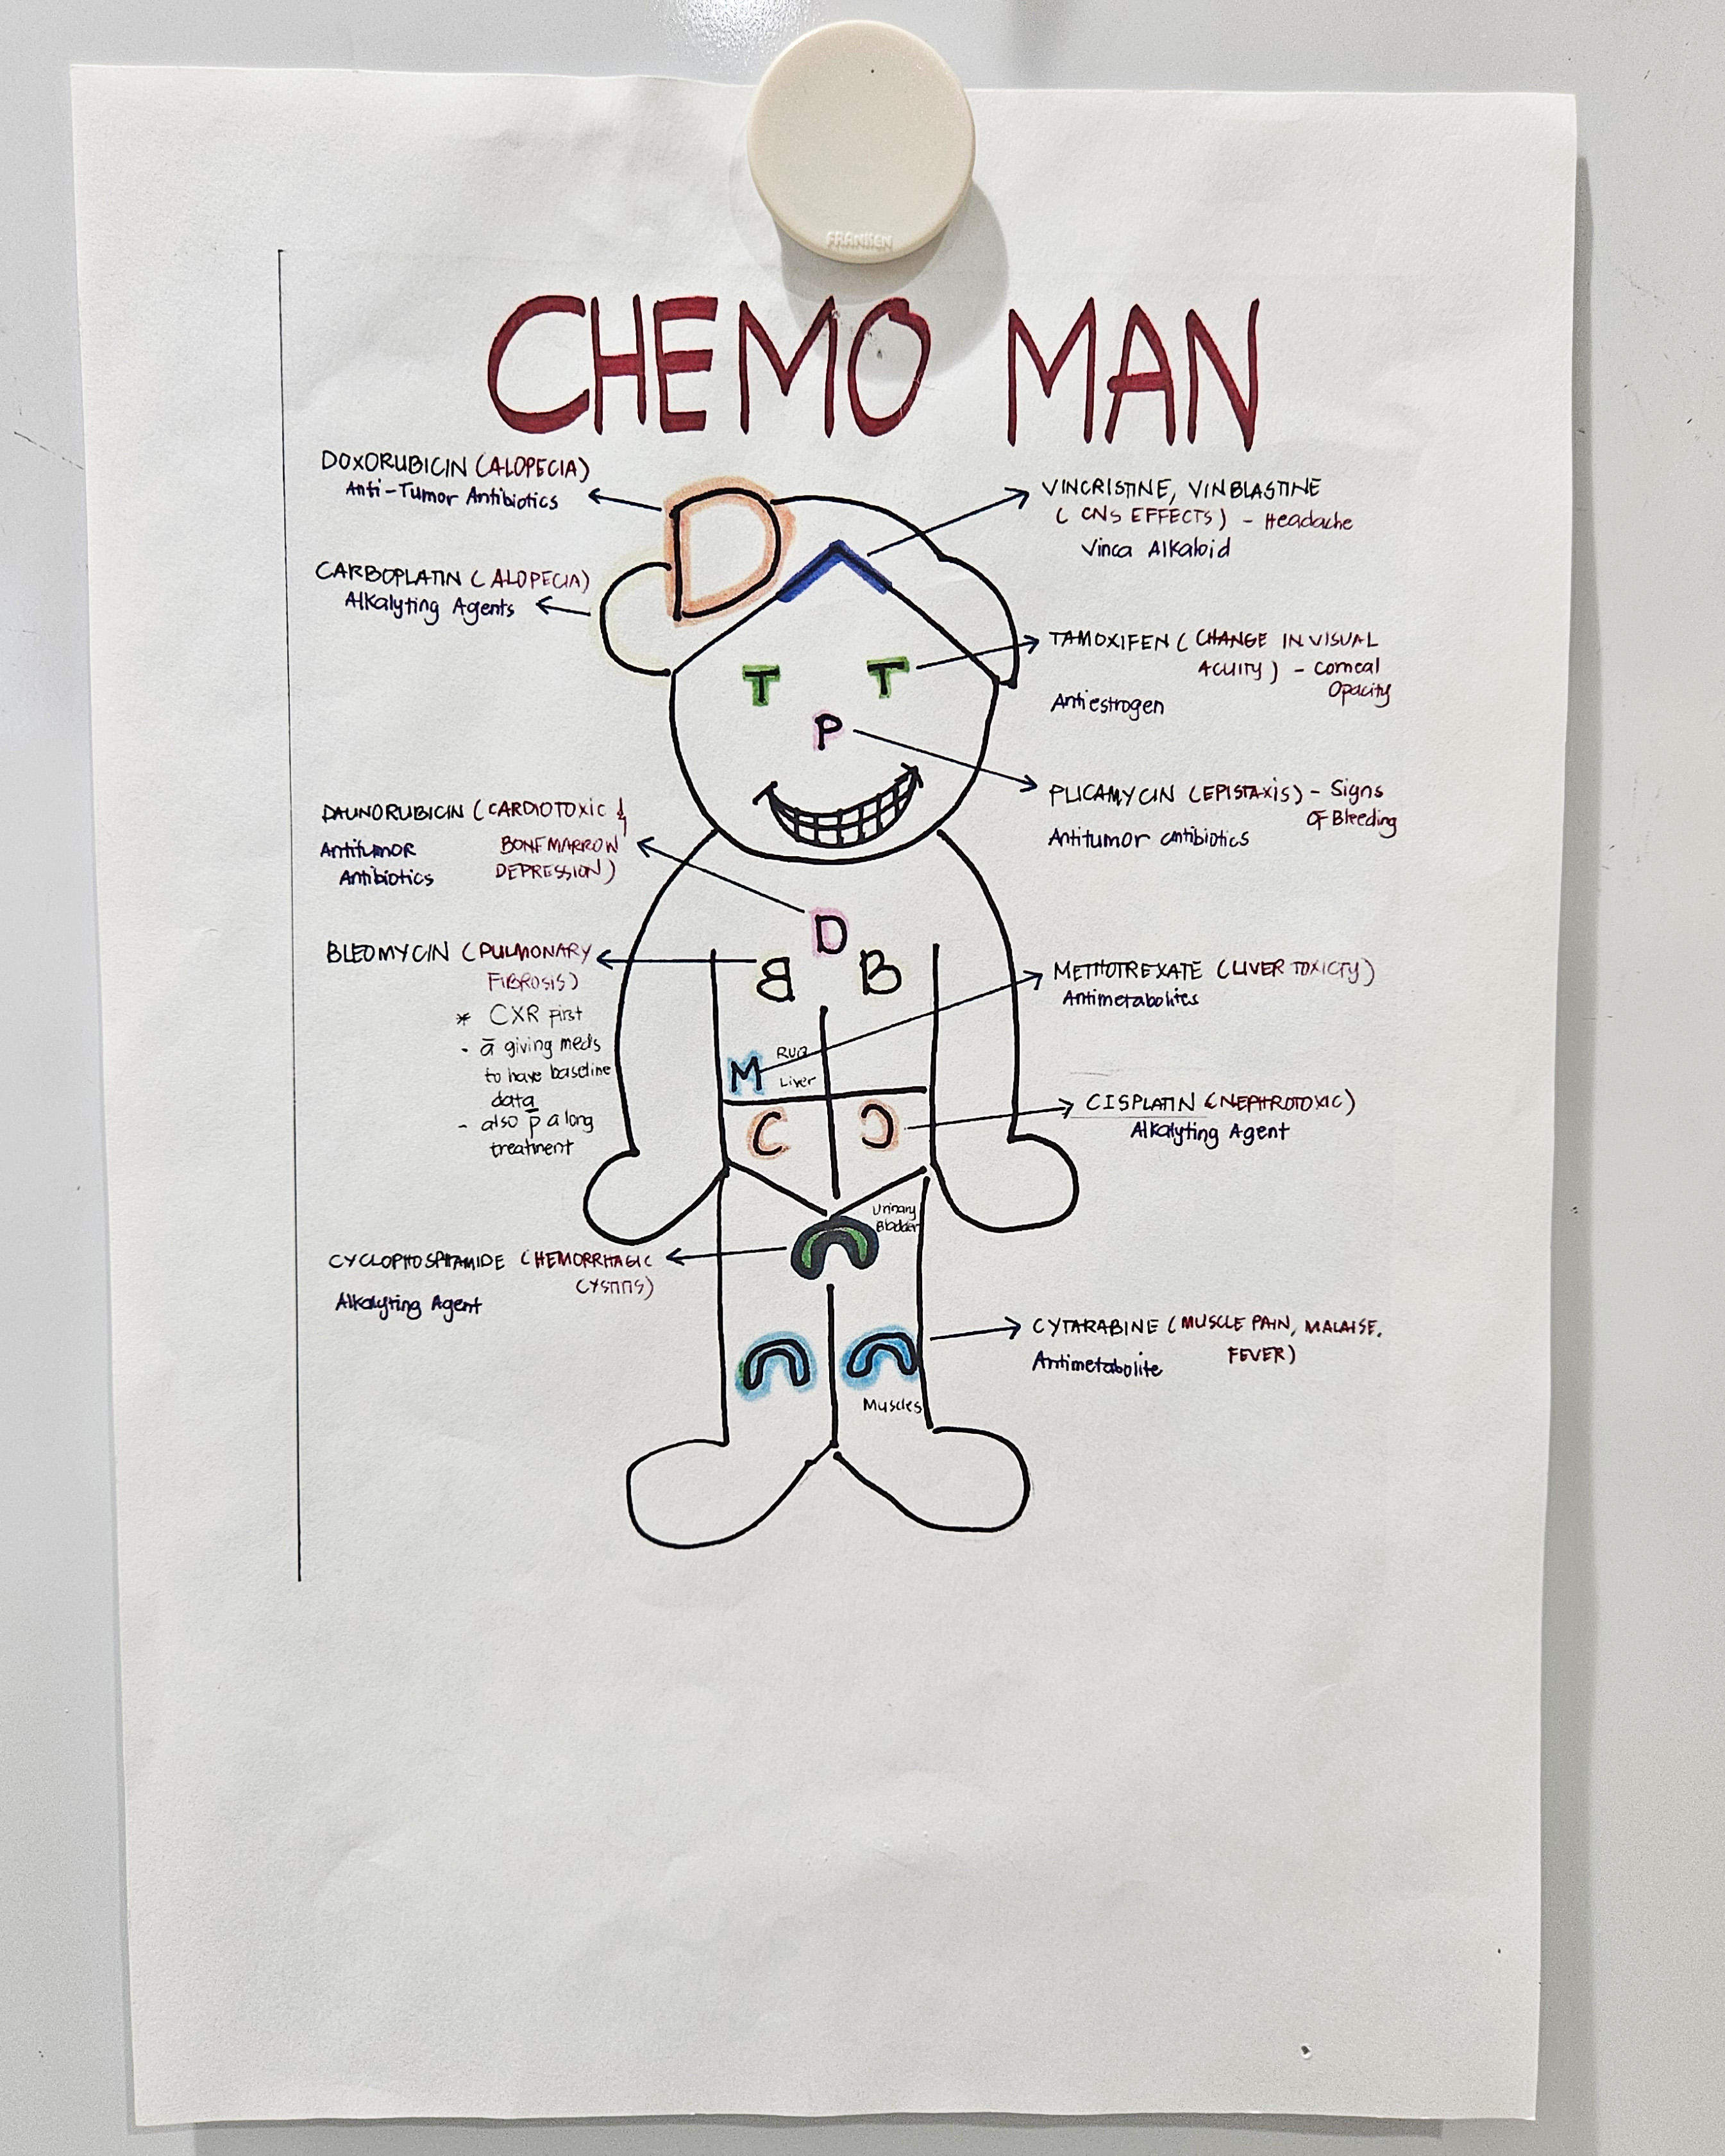 FRANKEN
CHEMO MAN
DOXORUBICIN (ALOPECIA)
Anti-Tumor Antibiotics
CARBOPLATIN (ALOPECIA)
Alkalyting Agents
DAUNORUBICIN (CARDIOTOXIC &
BONEMARROW
DEPRESSION)
Antitumor
Antibiotics
BLEOMYCIN (PULMONARY
FIBROSIS)
* CXR First
- ā giving meds
to have baseline
data
- also p̄ a long
treatment
CYCLOPHOSPHAMIDE (HEMORRHAGIC
CYSTITIS)
Alkalyting Agent
D
T T
P
D
B B
M
RUQ
Liver
C C
Urinary
Bladder
C
C C
Muscles
VINCRISTINE, VINBLASTINE
(CNS EFFECTS) - Headache
Vinca Alkaloid
TAMOXIFEN (CHANGE IN VISUAL
ACUITY) - Corneal
Opacity
Antiestrogen
PLICAMYCIN (EPISTAXIS) - Signs
OF Bleeding
Antitumor antibiotics
METHOTREXATE (LIVER TOXICTY)
Antimetabolites
CISPLATIN (NEPHROTOXIC)
Alkalyting Agent
CYTARABINE (MUSCLE PAIN, MALAISE,
FEVER)
Antimetabolite